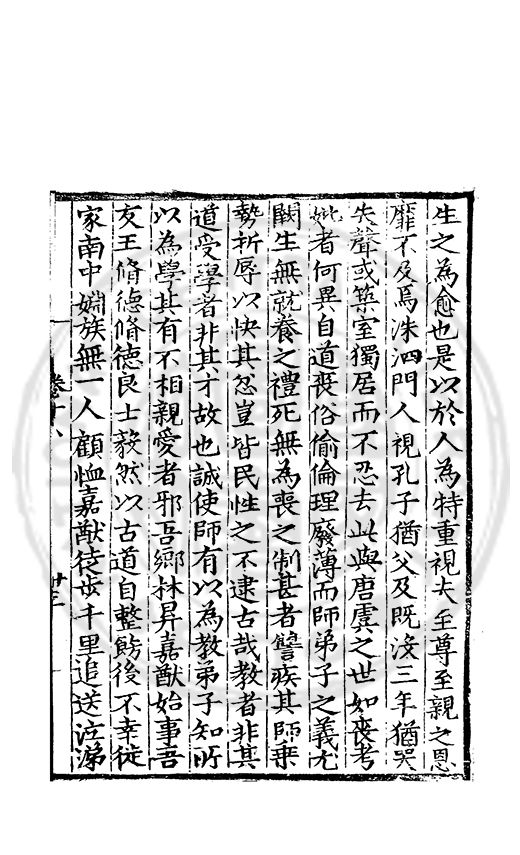 生之為愈也是以於人為特重視夫至尊至親之恩
靡不及焉洙泗門人視孔子猶父及既沒三年猶哭
失聲或築室獨居而不忍去此與唐虞之世如喪考
妣者何異自道喪俗偷倫理廢薄而師弟子之義尤
闕生無就養之禮死無為喪之制甚者讐疾其師乗
勢折辱以快其忿豈皆民性之不逮古哉教者非其
道受學者非其才故也誠使師有以為教弟子知所
以為學其有不相親愛者邪吾鄉林昇嘉猷始事吾
友王脩德脩德良士毅然以古道自整飭後不幸徙
家南中婣族無一人顧恤嘉猷徒步千里追送泣涕
卷十八
廿三